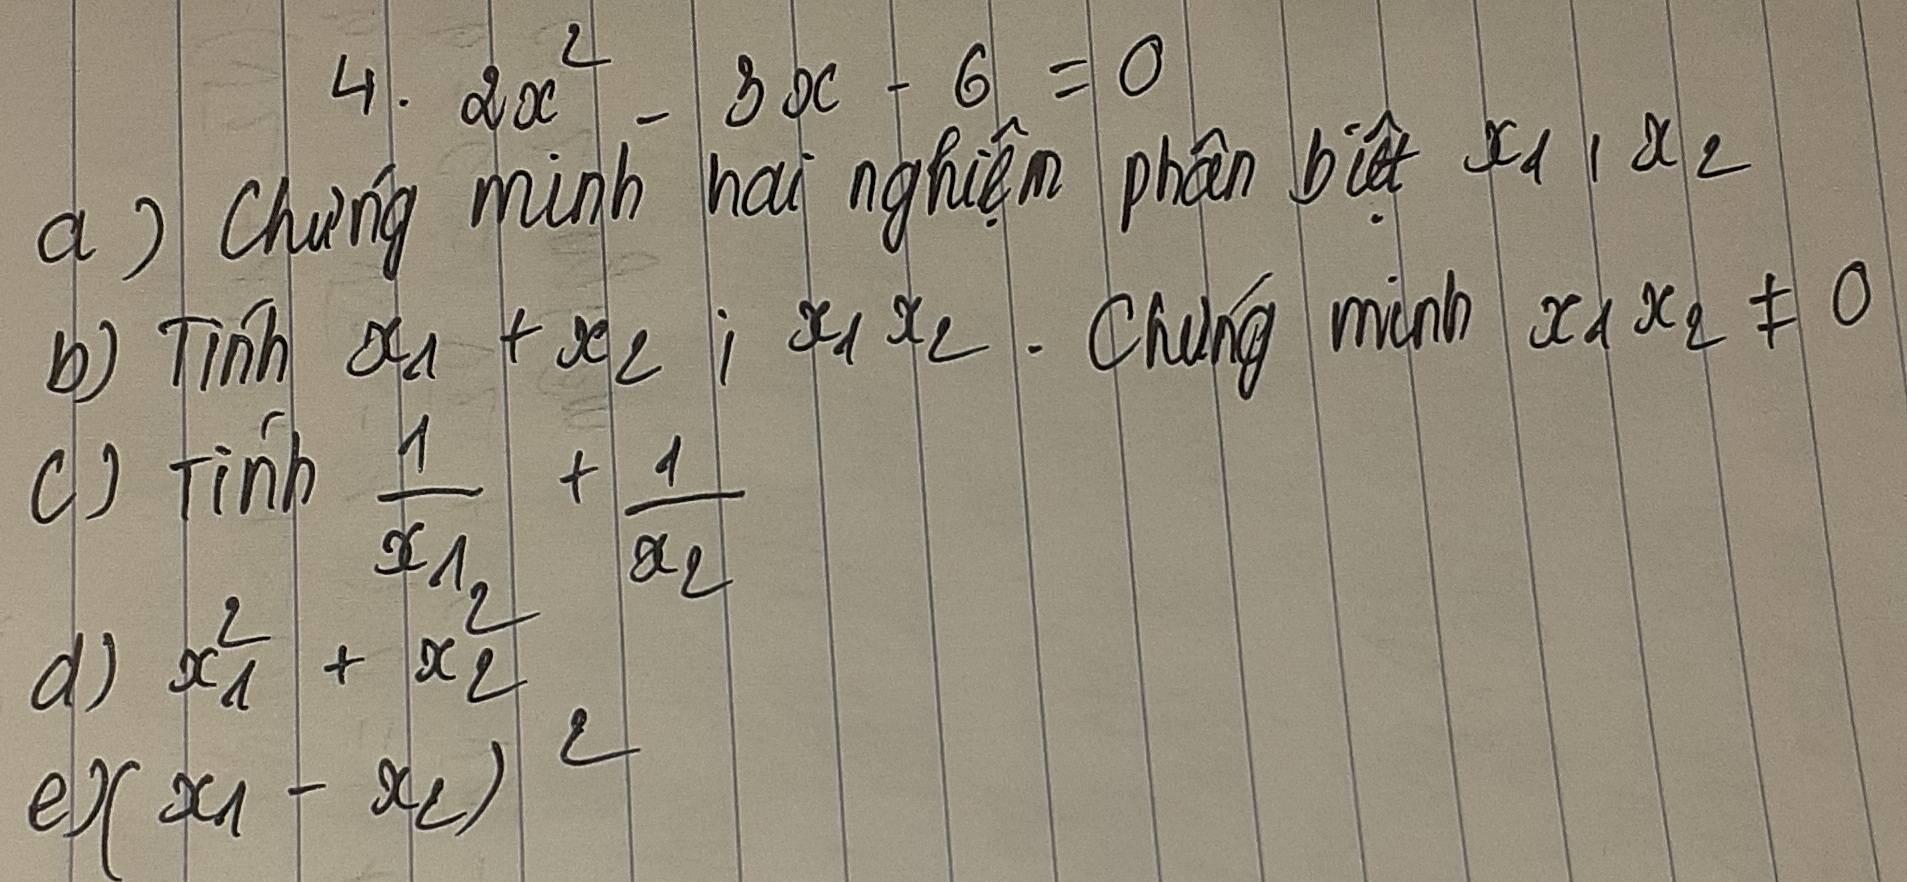 4. 2x² - 3x - 6 = 0
a) Chứng minh hai nghiệm phân biệt x₁, x₂
b) Tính x₁ + x₂ ; x₁ x₂. Chứng minh x₁ x₂ ≠ 0
c) Tính 1/x₁ + 1/x₂
d) x₁² + x₂²
e) (x₁ - x₂)²